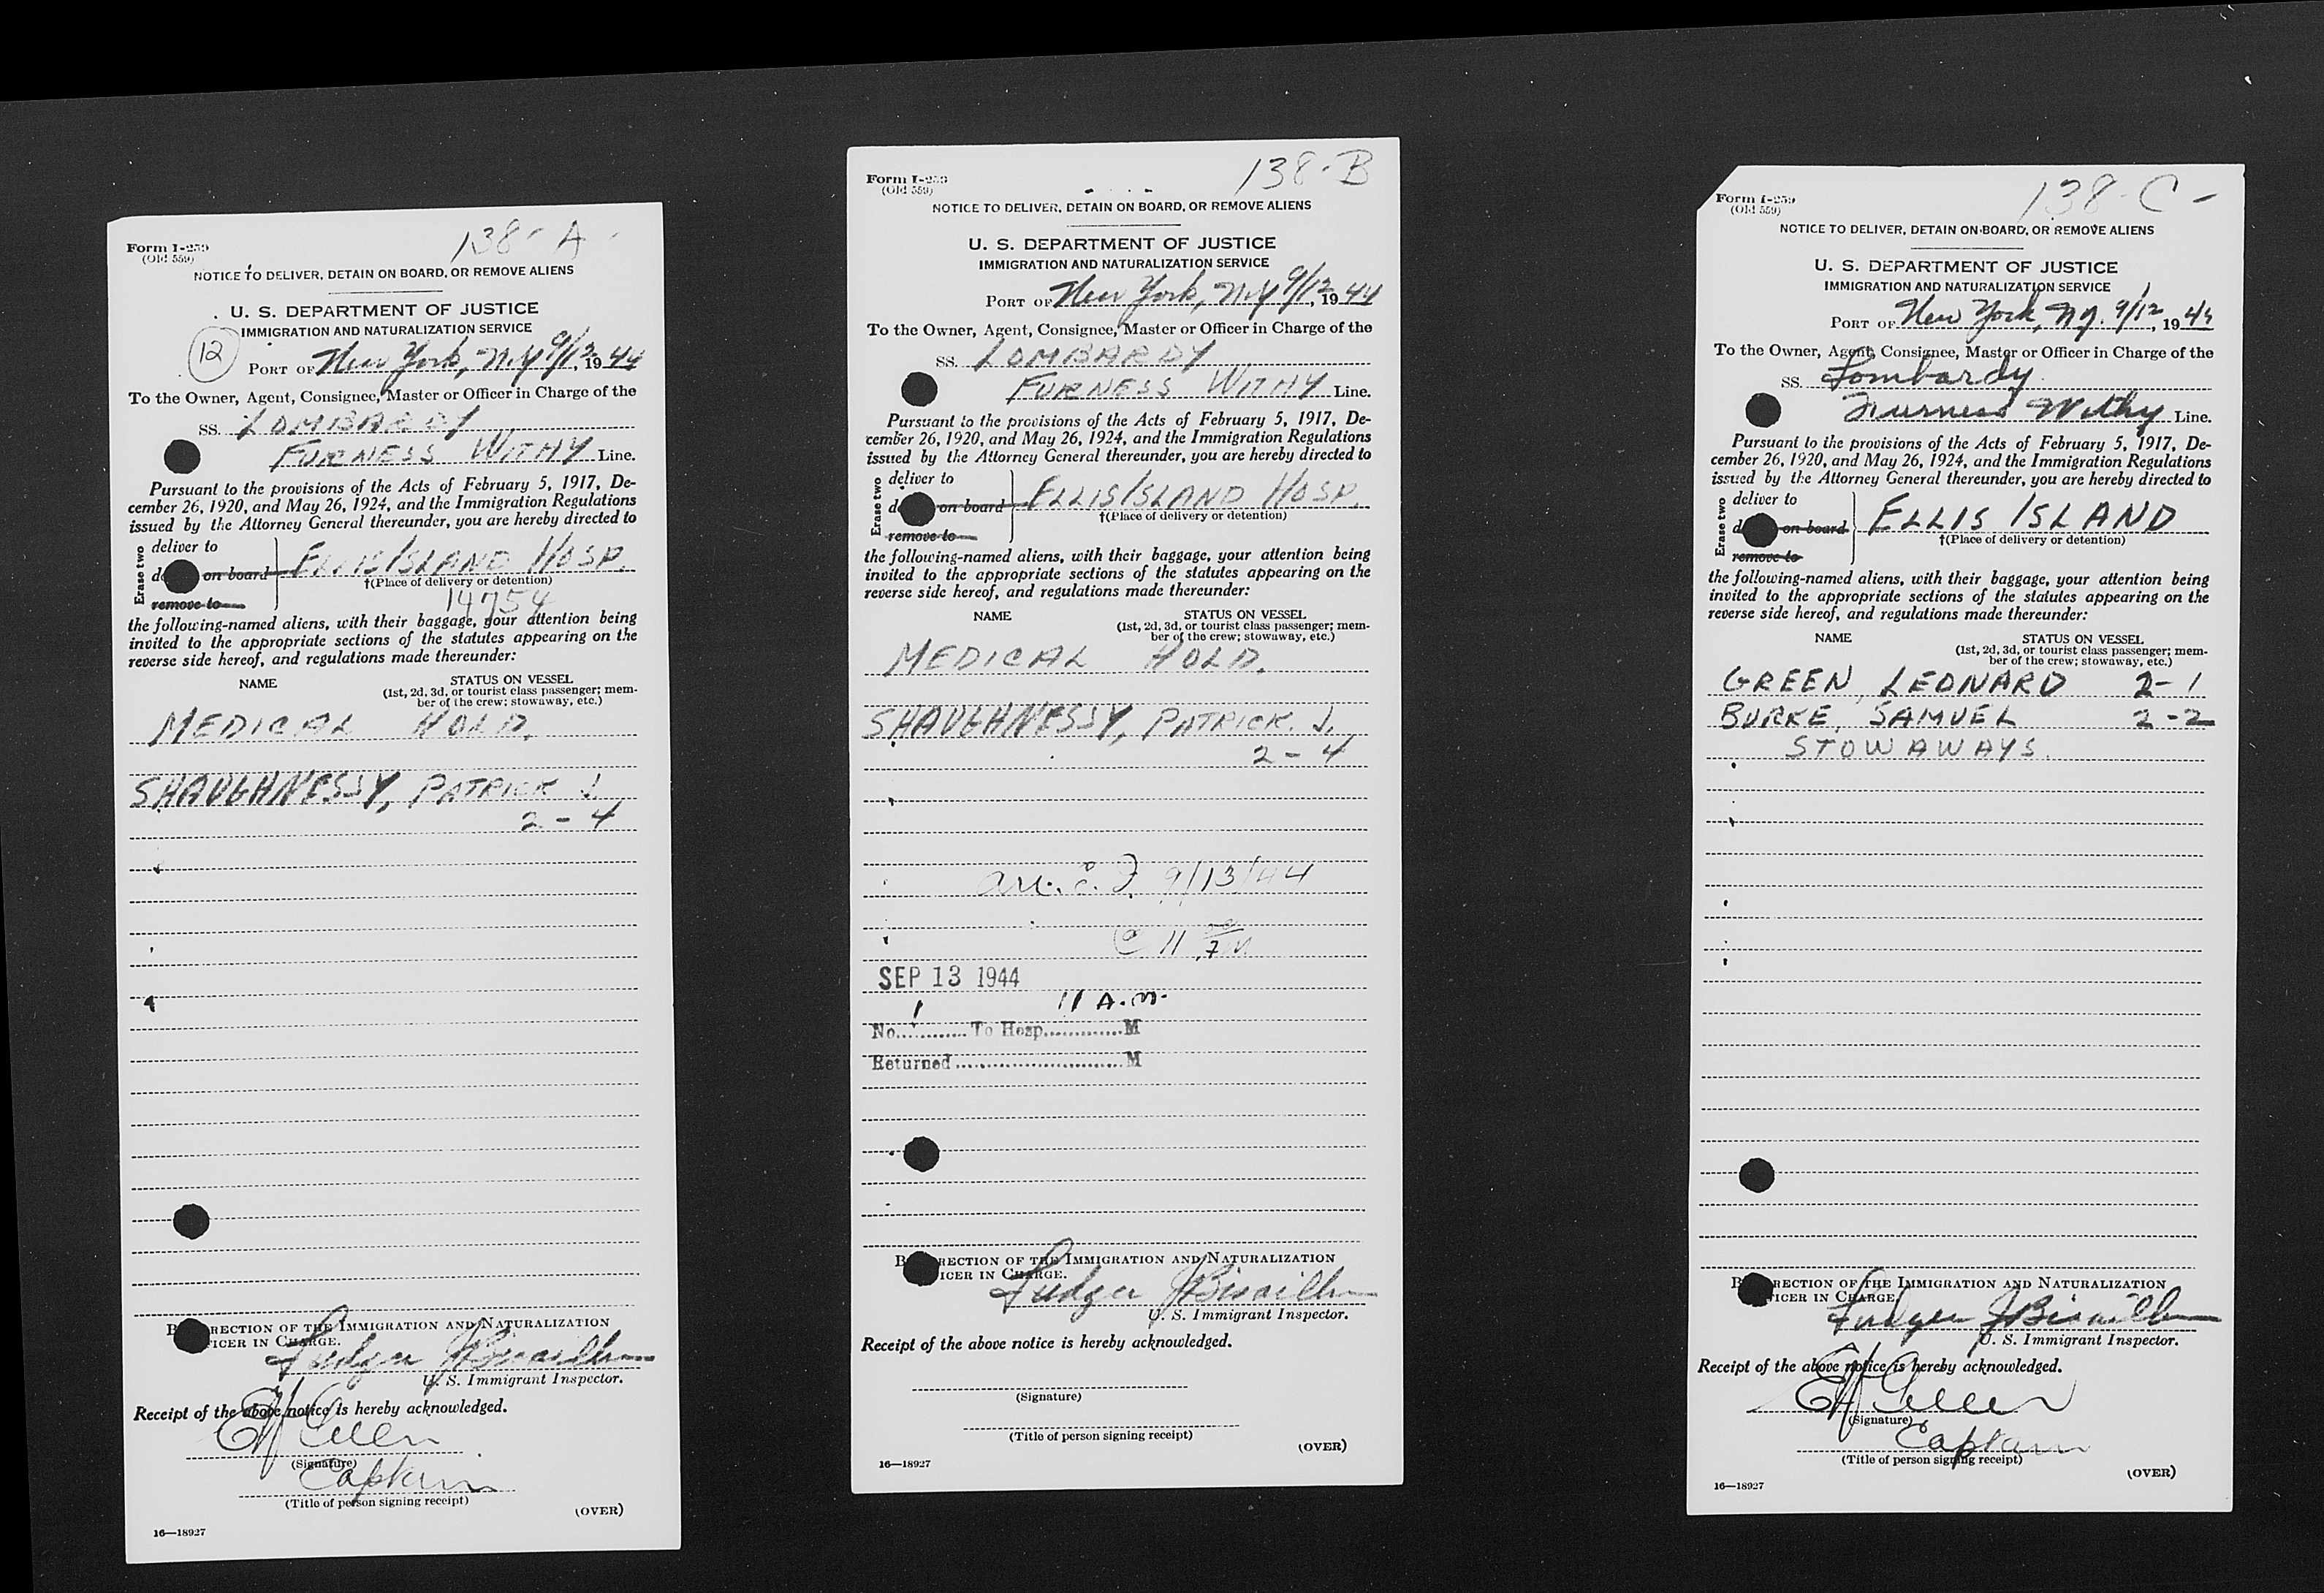 138-A-
Form I-259
(Old 559)
NOTICE TO DELIVER, DETAIN ON BOARD, OR REMOVE ALIENS
U. S. DEPARTMENT OF JUSTICE
IMMIGRATION AND NATURALIZATION SERVICE
12
PORT OF New York, N.Y. 9/12, 1944
To the Owner, Agent, Consignee, Master or Officer in Charge of the
SS. LOMBARDY
FURNESS WITHY Line.
Pursuant to the provisions of the Acts of February 5, 1917, De-
cember 26, 1920, and May 26, 1924, and the Immigration Regulations
issued by the Attorney General thereunder, you are hereby directed to
Erase two
deliver to
on board
remove to
ELLIS ISLAND HOSP.
†(Place of delivery or detention)
14754
the following-named aliens, with their baggage, your attention being
invited to the appropriate sections of the statutes appearing on the
reverse side hereof, and regulations made thereunder:
NAME STATUS ON VESSEL
(1st, 2d, 3d, or tourist class passenger; mem-
ber of the crew; stowaway, etc.)
MEDICAL HOLD.
SHAUGHNESSY, PATRICK J.
2-4
RECTION OF THE IMMIGRATION AND NATURALIZATION
ICER IN CHARGE.
U. S. Immigrant Inspector.
Receipt of the above notice is hereby acknowledged.
(Signature)
Captain
(Title of person signing receipt)
(OVER)
16—18927
138-B
Form I-259
(Old 559)
NOTICE TO DELIVER, DETAIN ON BOARD, OR REMOVE ALIENS
U. S. DEPARTMENT OF JUSTICE
IMMIGRATION AND NATURALIZATION SERVICE
PORT OF New York, N.Y. 9/12, 1944
To the Owner, Agent, Consignee, Master or Officer in Charge of the
SS. LOMBARDY
FURNESS WITHY Line.
Pursuant to the provisions of the Acts of February 5, 1917, De-
cember 26, 1920, and May 26, 1924, and the Immigration Regulations
issued by the Attorney General thereunder, you are hereby directed to
Erase two
deliver to
on board
remove to
ELLIS ISLAND HOSP.
†(Place of delivery or detention)
the following-named aliens, with their baggage, your attention being
invited to the appropriate sections of the statutes appearing on the
reverse side hereof, and regulations made thereunder:
NAME STATUS ON VESSEL
(1st, 2d, 3d, or tourist class passenger; mem-
ber of the crew; stowaway, etc.)
MEDICAL HOLD.
SHAUGHNESSY, PATRICK. J.
2-4
9/13/44
@ 11
SEP 13 1944
1 11 A.M.
No. To Hosp. M
Returned M
RECTION OF THE IMMIGRATION AND NATURALIZATION
ICER IN CHARGE.
U. S. Immigrant Inspector.
Receipt of the above notice is hereby acknowledged.
(Signature)
(Title of person signing receipt)
(OVER)
16—18927
138-C-
Form I-259
(Old 559)
NOTICE TO DELIVER, DETAIN ON BOARD, OR REMOVE ALIENS
U. S. DEPARTMENT OF JUSTICE
IMMIGRATION AND NATURALIZATION SERVICE
PORT OF New York, N.Y. 9/12, 1944
To the Owner, Agent, Consignee, Master or Officer in Charge of the
SS. Lombardy
Furness Withy Line.
Pursuant to the provisions of the Acts of February 5, 1917, De-
cember 26, 1920, and May 26, 1924, and the Immigration Regulations
issued by the Attorney General thereunder, you are hereby directed to
Erase two
deliver to
on board
remove to
ELLIS ISLAND
†(Place of delivery or detention)
the following-named aliens, with their baggage, your attention being
invited to the appropriate sections of the statutes appearing on the
reverse side hereof, and regulations made thereunder:
NAME STATUS ON VESSEL
(1st, 2d, 3d, or tourist class passenger; mem-
ber of the crew; stowaway, etc.)
GREEN, LEONARD 2-1
BURKE, SAMUEL 2-2
STOWAWAYS.
RECTION OF THE IMMIGRATION AND NATURALIZATION
ICER IN CHARGE.
U. S. Immigrant Inspector.
Receipt of the above notice is hereby acknowledged.
(Signature)
Captain
(Title of person signing receipt)
(OVER)
16—18927